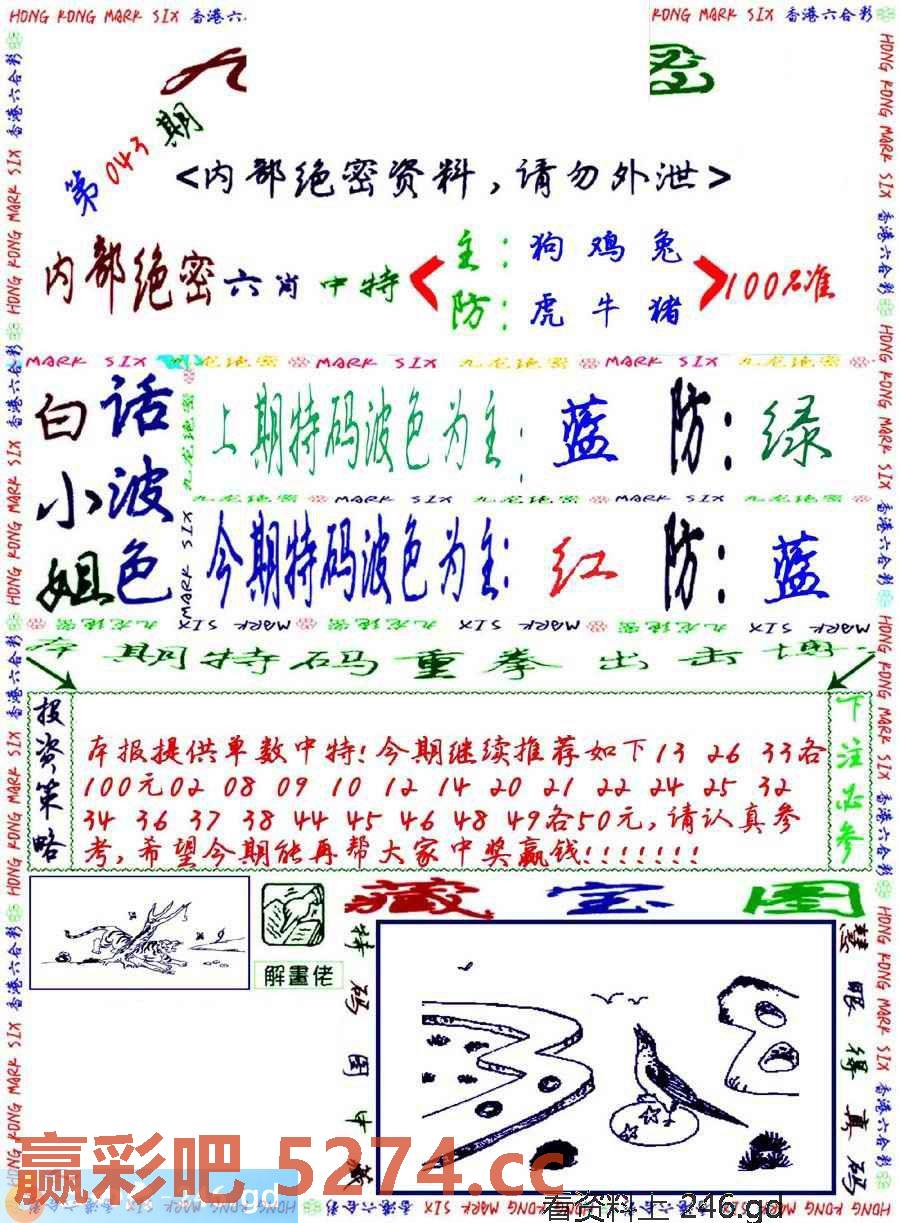 HONG KONG MARK SIX 香港六
KONG MARK SIX 香港六合彩
第043期
<内部绝密资料,请勿外泄>
内部绝密六肖中特
主:狗鸡兔
防:虎牛猪
100%准
MARK SIX 九龙绝密 MARK SIX 九龙绝密 MARK SIX 九龙绝密
白话
小波
姐色
上期特码波色为主: 蓝 防: 绿
九龙绝密 MARK SIX 九龙绝密 MARK SIX 九龙绝密 MARK SIX
今期特码波色为主: 红 防: 蓝
本期特码重拳出击博
投资策略
本报提供单数中特!今期继续推荐如下13 26 33各
100元02 08 09 10 12 14 20 21 22 24 25 32
34 36 37 38 44 45 46 48 49各50元,请认真参
考,希望今期能再帮大家中奖赢钱!!!!!!!
下注必参
解畫佬
藏宝图
特码图中藏
慧眼得真码
赢彩吧 5274.cc
看资料上 216.gd